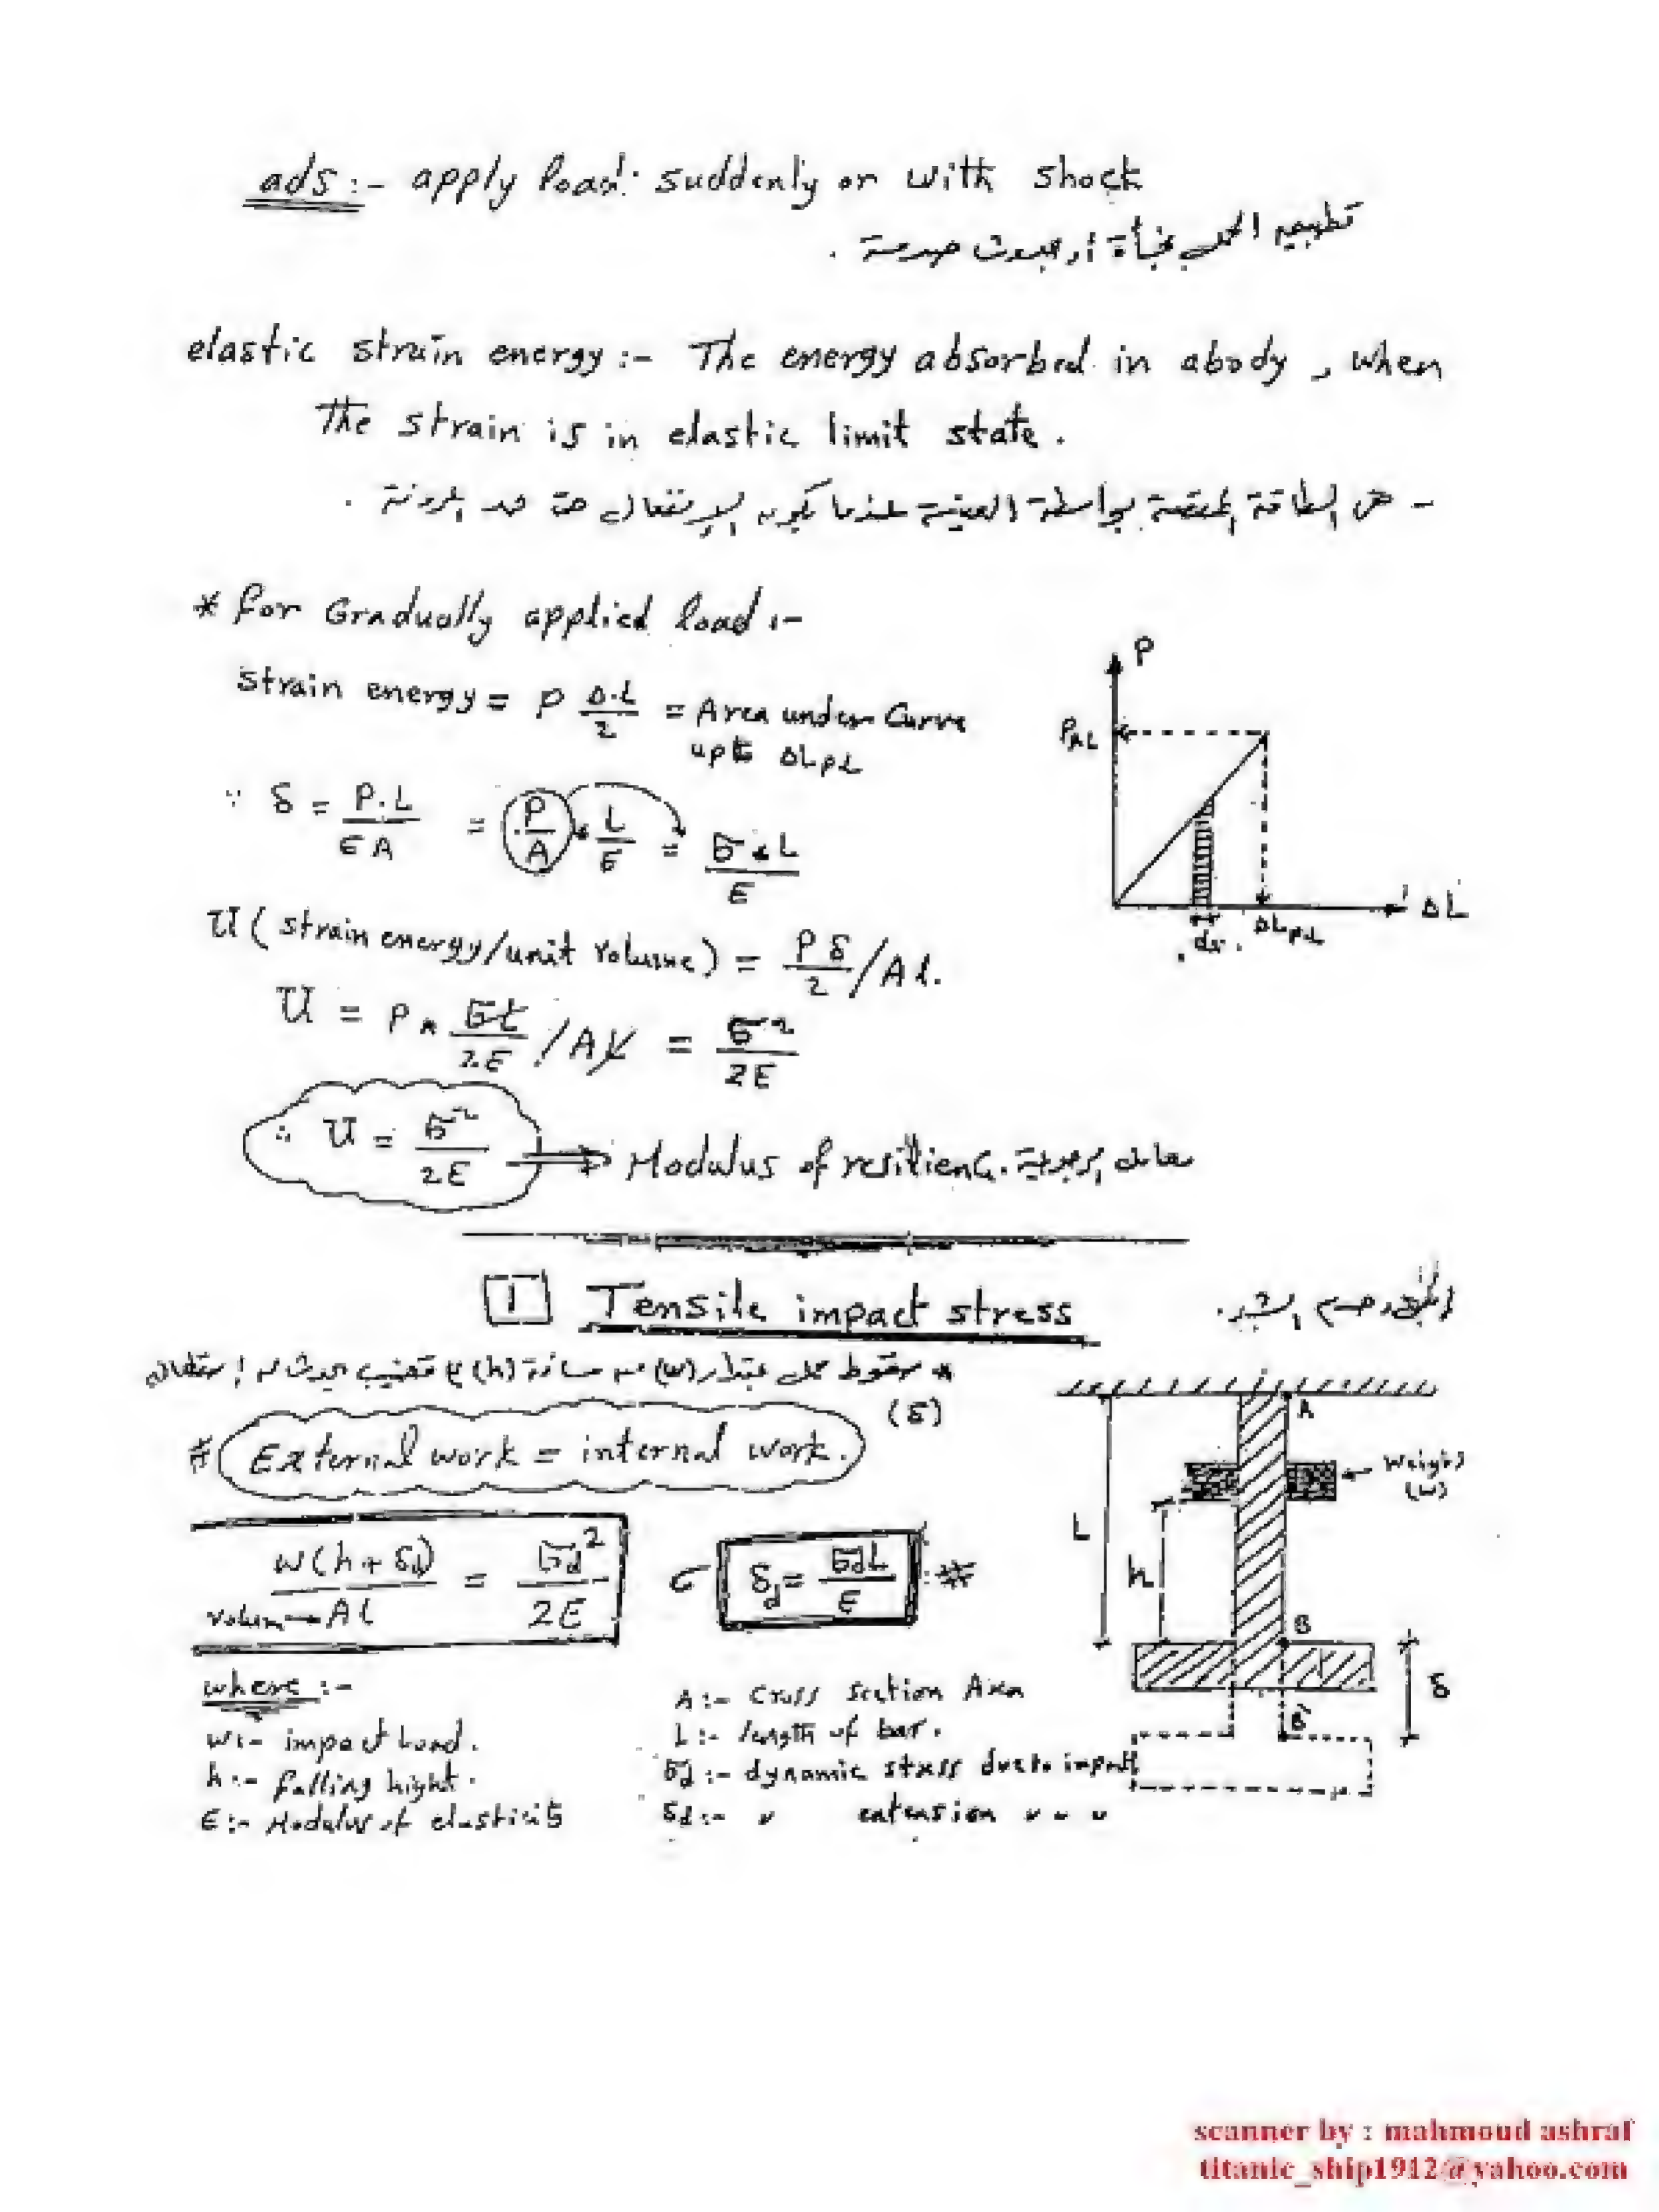 ads :- apply load suddenly or with shock
تطبيق الحمل فجأة أو بحدوث صدمة .
elastic strain energy :- The energy absorbed in abody , when
The strain is in elastic limit state .
- هى الطاقة الممتصة بواسطة العينة عندما يكون الإنفعال حتى حد المرونة .
* for Gradually applied load :-
strain energy = P Δ.L / 2 = Area under Curve
upto ΔLPL
∵ δ = P.L / EA = P/A × L/E = σ × L / E
U ( strain energy/unit volume ) = P δ / 2 / A L.
U = P × σL / 2E / A L = σ² / 2E
∴ U = σ² / 2E ⇒ Modulus of resilienc. معاير الرجوعية
P
ΔL
ΔLPL
dδ
1 Tensile impact stress
* سقوط حمل بمقدار (w) من مسافة (h)
(δ)
# External work = internal work.
w(h + δd) / AL = σd² / 2E
volum → AL
δd = σd L / E #
A
Weight
(w)
L
h
B
δ
B'
where :-
w :- impact Load .
h :- falling hight .
E :- Modulus of elasticity
A :- Cross section Area
L :- length of bar .
σd :- dynamic stress due to impact
δd :- " extension " " "
scanner by : mahmoud ashraf
titanic_ship1912@yahoo.com